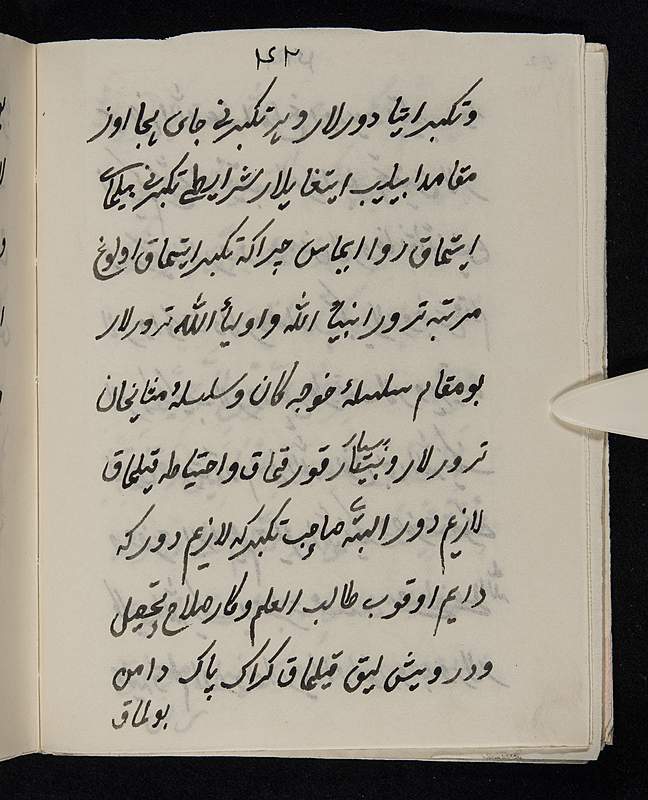 ۴۲
وتكبير ایتا دورلار و هر تكبیرنی جای بجا اوز
مقامدا بیلیب ایتغایلار شرایطی تكبیرنی بیلمای
ایتماق روا ایماس چیراكه تكبیر ایتماق اولوغ
مرتبه ترور انبیأ الله و اولیأ الله ترورلار
بو مقام سلسلهٔ خوجه كان و سلسلهٔ مشایخان
ترورلار و بسیار قورقماق و احتیاطه قیلماق
لازیم دور البته صاحب تكبیركه لازیم دور كه
دایم اوقوب طالب العلم و كار صلاح تحصیل
ودرویش لیق قیلماق كراك پاك دامن
بولماق